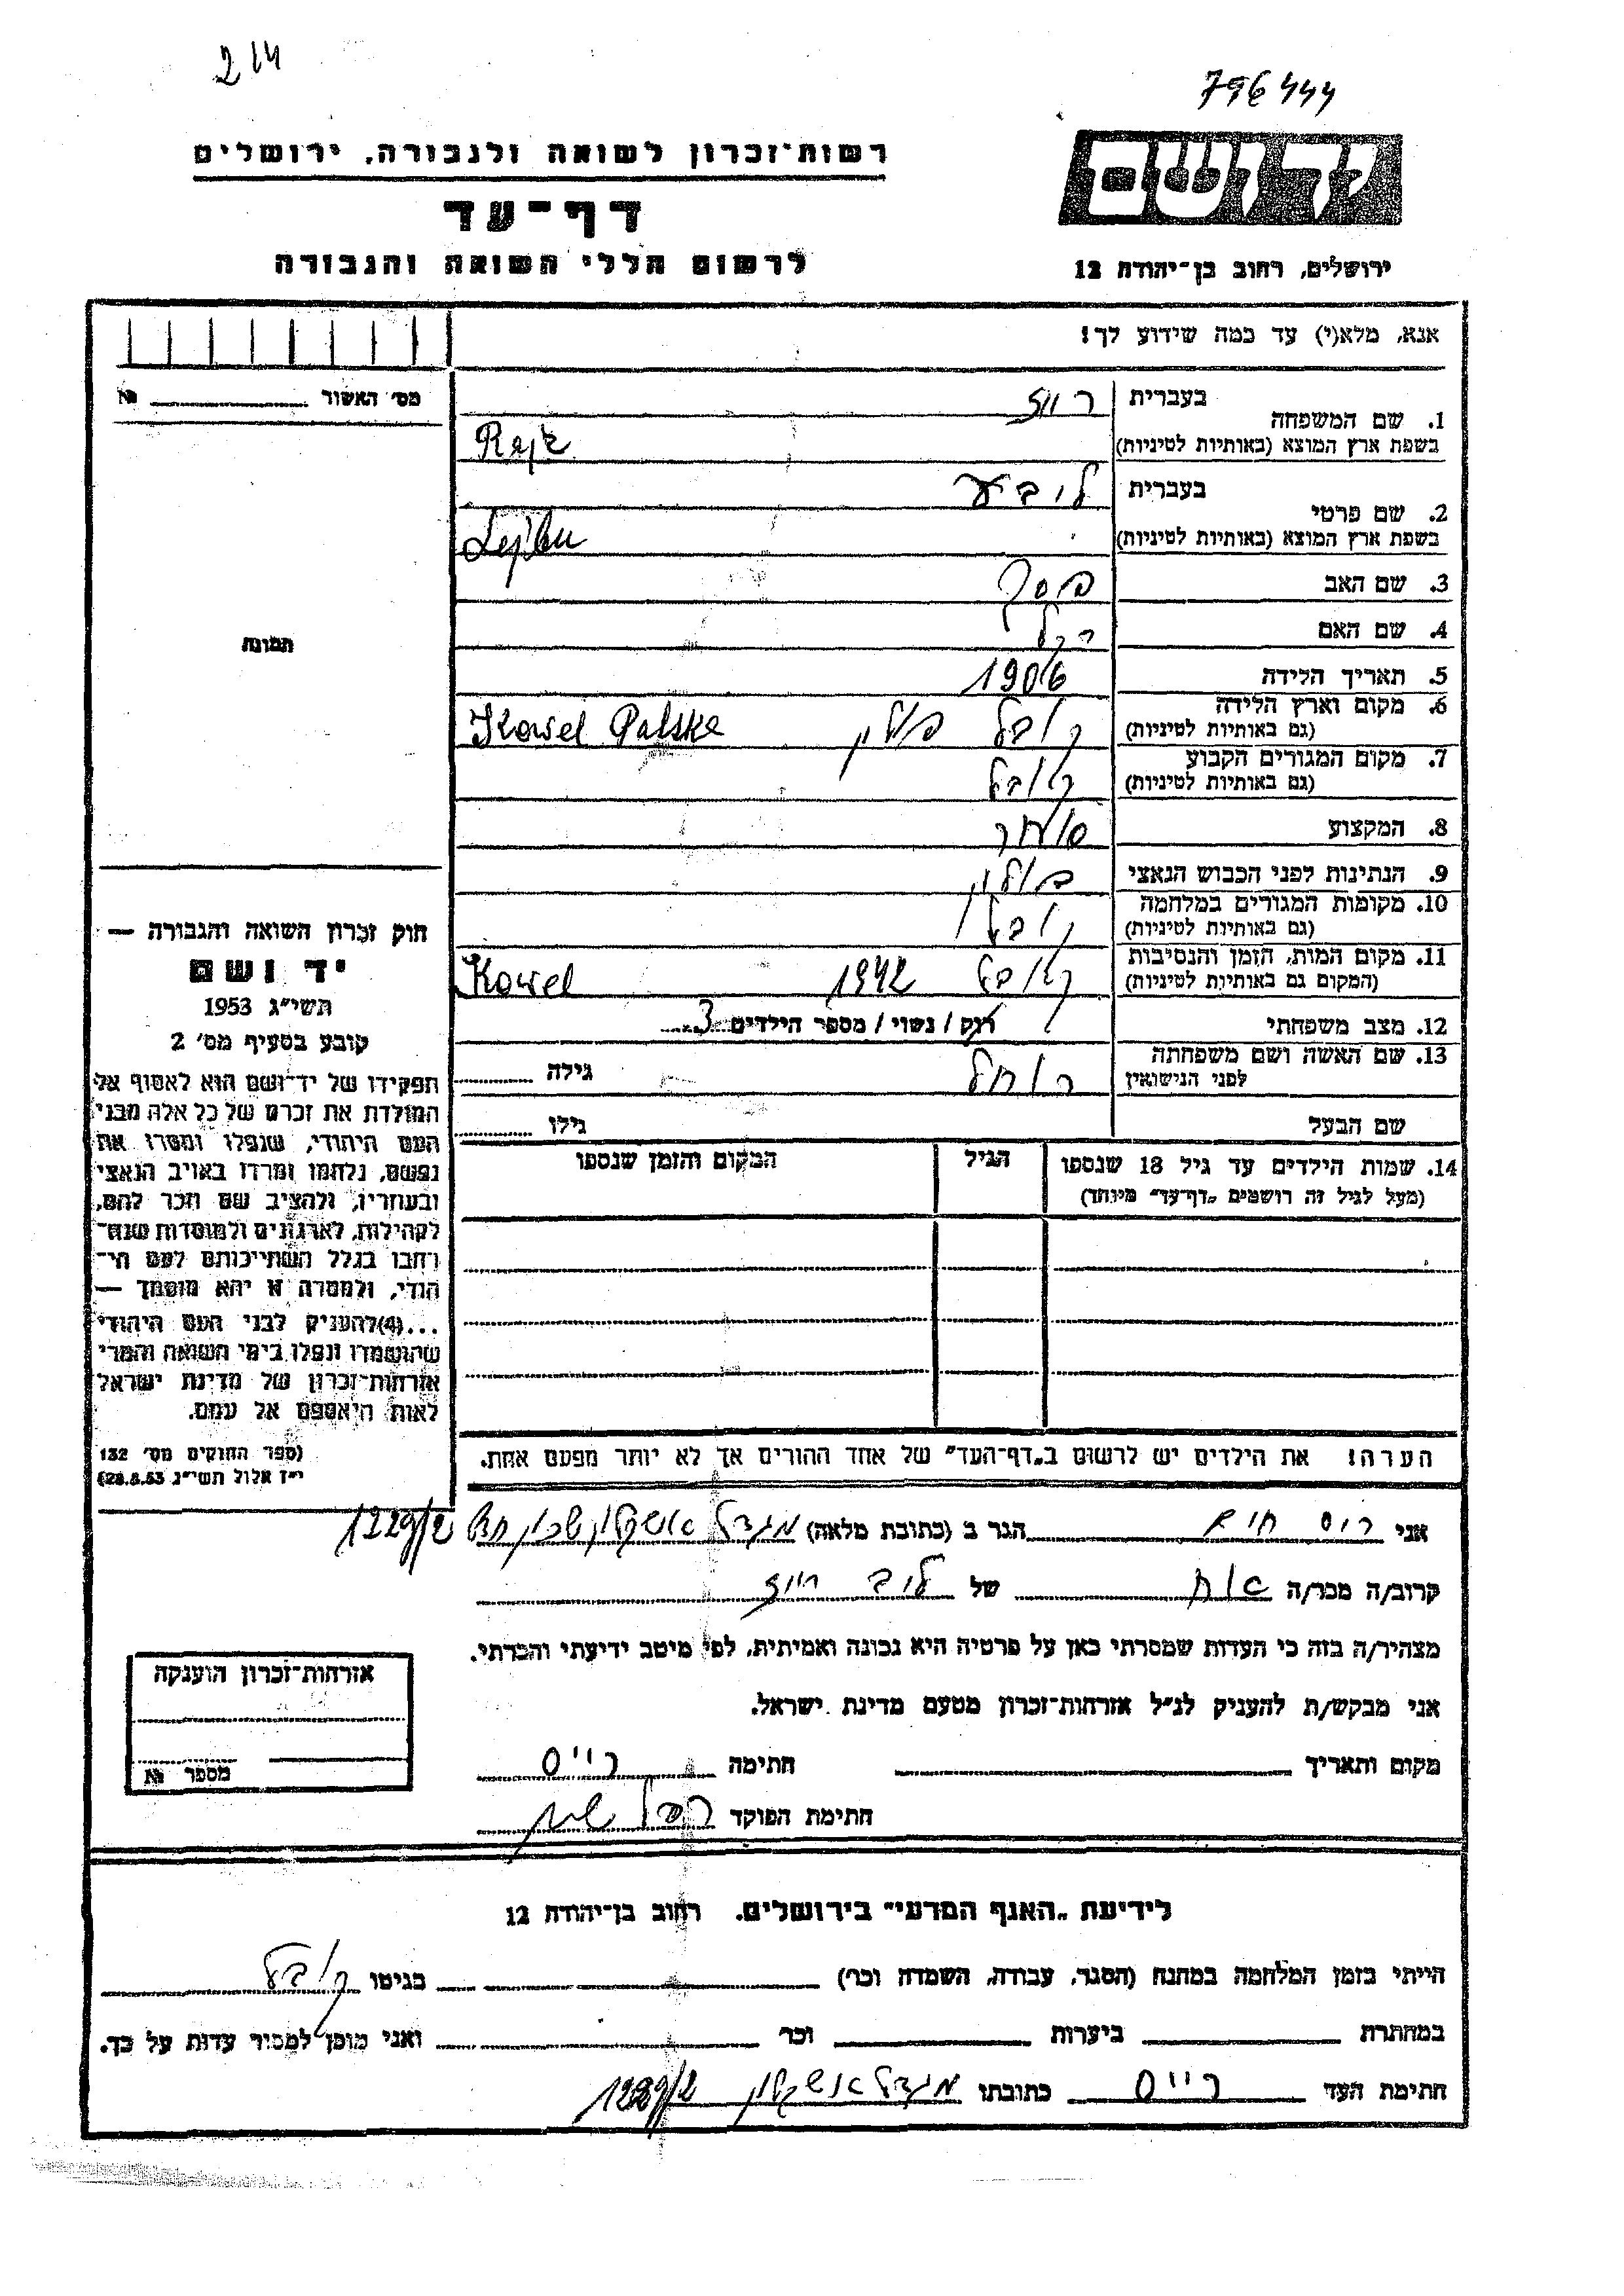 214
796444
רשות־זכרון לשואה ולגבורה, ירושלים
יד ושם
דף־עד
לרשום חללי השואה והגבורה
ירושלים, רחוב בן־יהודה 12
אנא, מלא(י) עד כמה שידוע לך!
מס׳ האשור № 
1. שם המשפחה בעברית רייז
בשפת ארץ המוצא (באותיות לטיניות)
2. שם פרטי בעברית
בשפת ארץ המוצא (באותיות לטיניות)
3. שם האב
4. שם האם רחל
תמונה
5. תאריך הלידה 1906
6. מקום וארץ הלידה קובל פולין Kowel Polska
(גם באותיות לטיניות)
7. מקום המגורים הקבוע קובל
(גם באותיות לטיניות)
8. המקצוע סוחר
9. הנתינות לפני הכבוש הנאצי פולין
10. מקומות המגורים במלחמה קובל
(גם באותיות לטיניות)
11. מקום המות, הזמן והנסיבות קובל 1942 Kowel
(המקום גם באותיות לטיניות)
12. מצב משפחתי רוק / נשוי / מספר הילדים 3
13. שם האשה ושם משפחתה רחל גילה
לפני הנישואין
שם הבעל גילו
14. שמות הילדים עד גיל 18 שנספו הגיל המקום והזמן שנספו
(מעל לגיל זה רושמים „דף־עד״ מיוחד)
הערה: את הילדים יש לרשום ב„דף־העד״ של אחד ההורים אך לא יותר מפעם אחת.
חוק זכרון השואה והגבורה —
יד ושם
תשי״ג 1953
קובע בסעיף מס׳ 2
תפקידו של יד־ושם הוא לאסוף אל
המולדת את זכרם של כל אלה מבני
העם היהודי, שנפלו ומסרו את
נפשם, נלחמו ומרדו באויב הנאצי
ובעוזריו, ולהציב שם וזכר להם,
לקהילות, לארגונים ולמוסדות שנח־
רבו בגלל השתייכותם לעם הי־
הודי, ולמטרה זו יהא מוסמך —
...(4)להעניק לבני העם היהודי
שהושמדו ונפלו בימי השואה והמרי
אזרחות־זכרון של מדינת ישראל
לאות היאספם אל עמם.
(ספר החוקים מס׳ 132
י״ז אלול תשי״ג 28.8.53)
אני רייס חיים הגר ב (כתובת מלאה) מגדל אשקלון שכון 1229/2
קרוב/ה מכר/ה אח של לייב רייז
מצהיר/ה בזה כי העדות שמסרתי כאן על פרטיה היא נכונה ואמיתית, לפי מיטב ידיעתי והכרתי.
אני מבקש/ת להעניק לנ״ל אזרחות־זכרון מטעם מדינת ישראל.
מקום ותאריך חתימה רייס
חתימת הפוקד
אזרחות־זכרון הוענקה
מספר №
לידיעת „האגף המדעי״ בירושלים. רחוב בן־יהודה 12
הייתי בזמן המלחמה במחנה (הסגר, עבודה, השמדה וכו׳) בגיטו קובל
במחתרת ביערות וכו׳ ואני מוכן למסיר עדות על כך.
חתימת העד רייס כתובתו מגדל אשקלון 1229/2